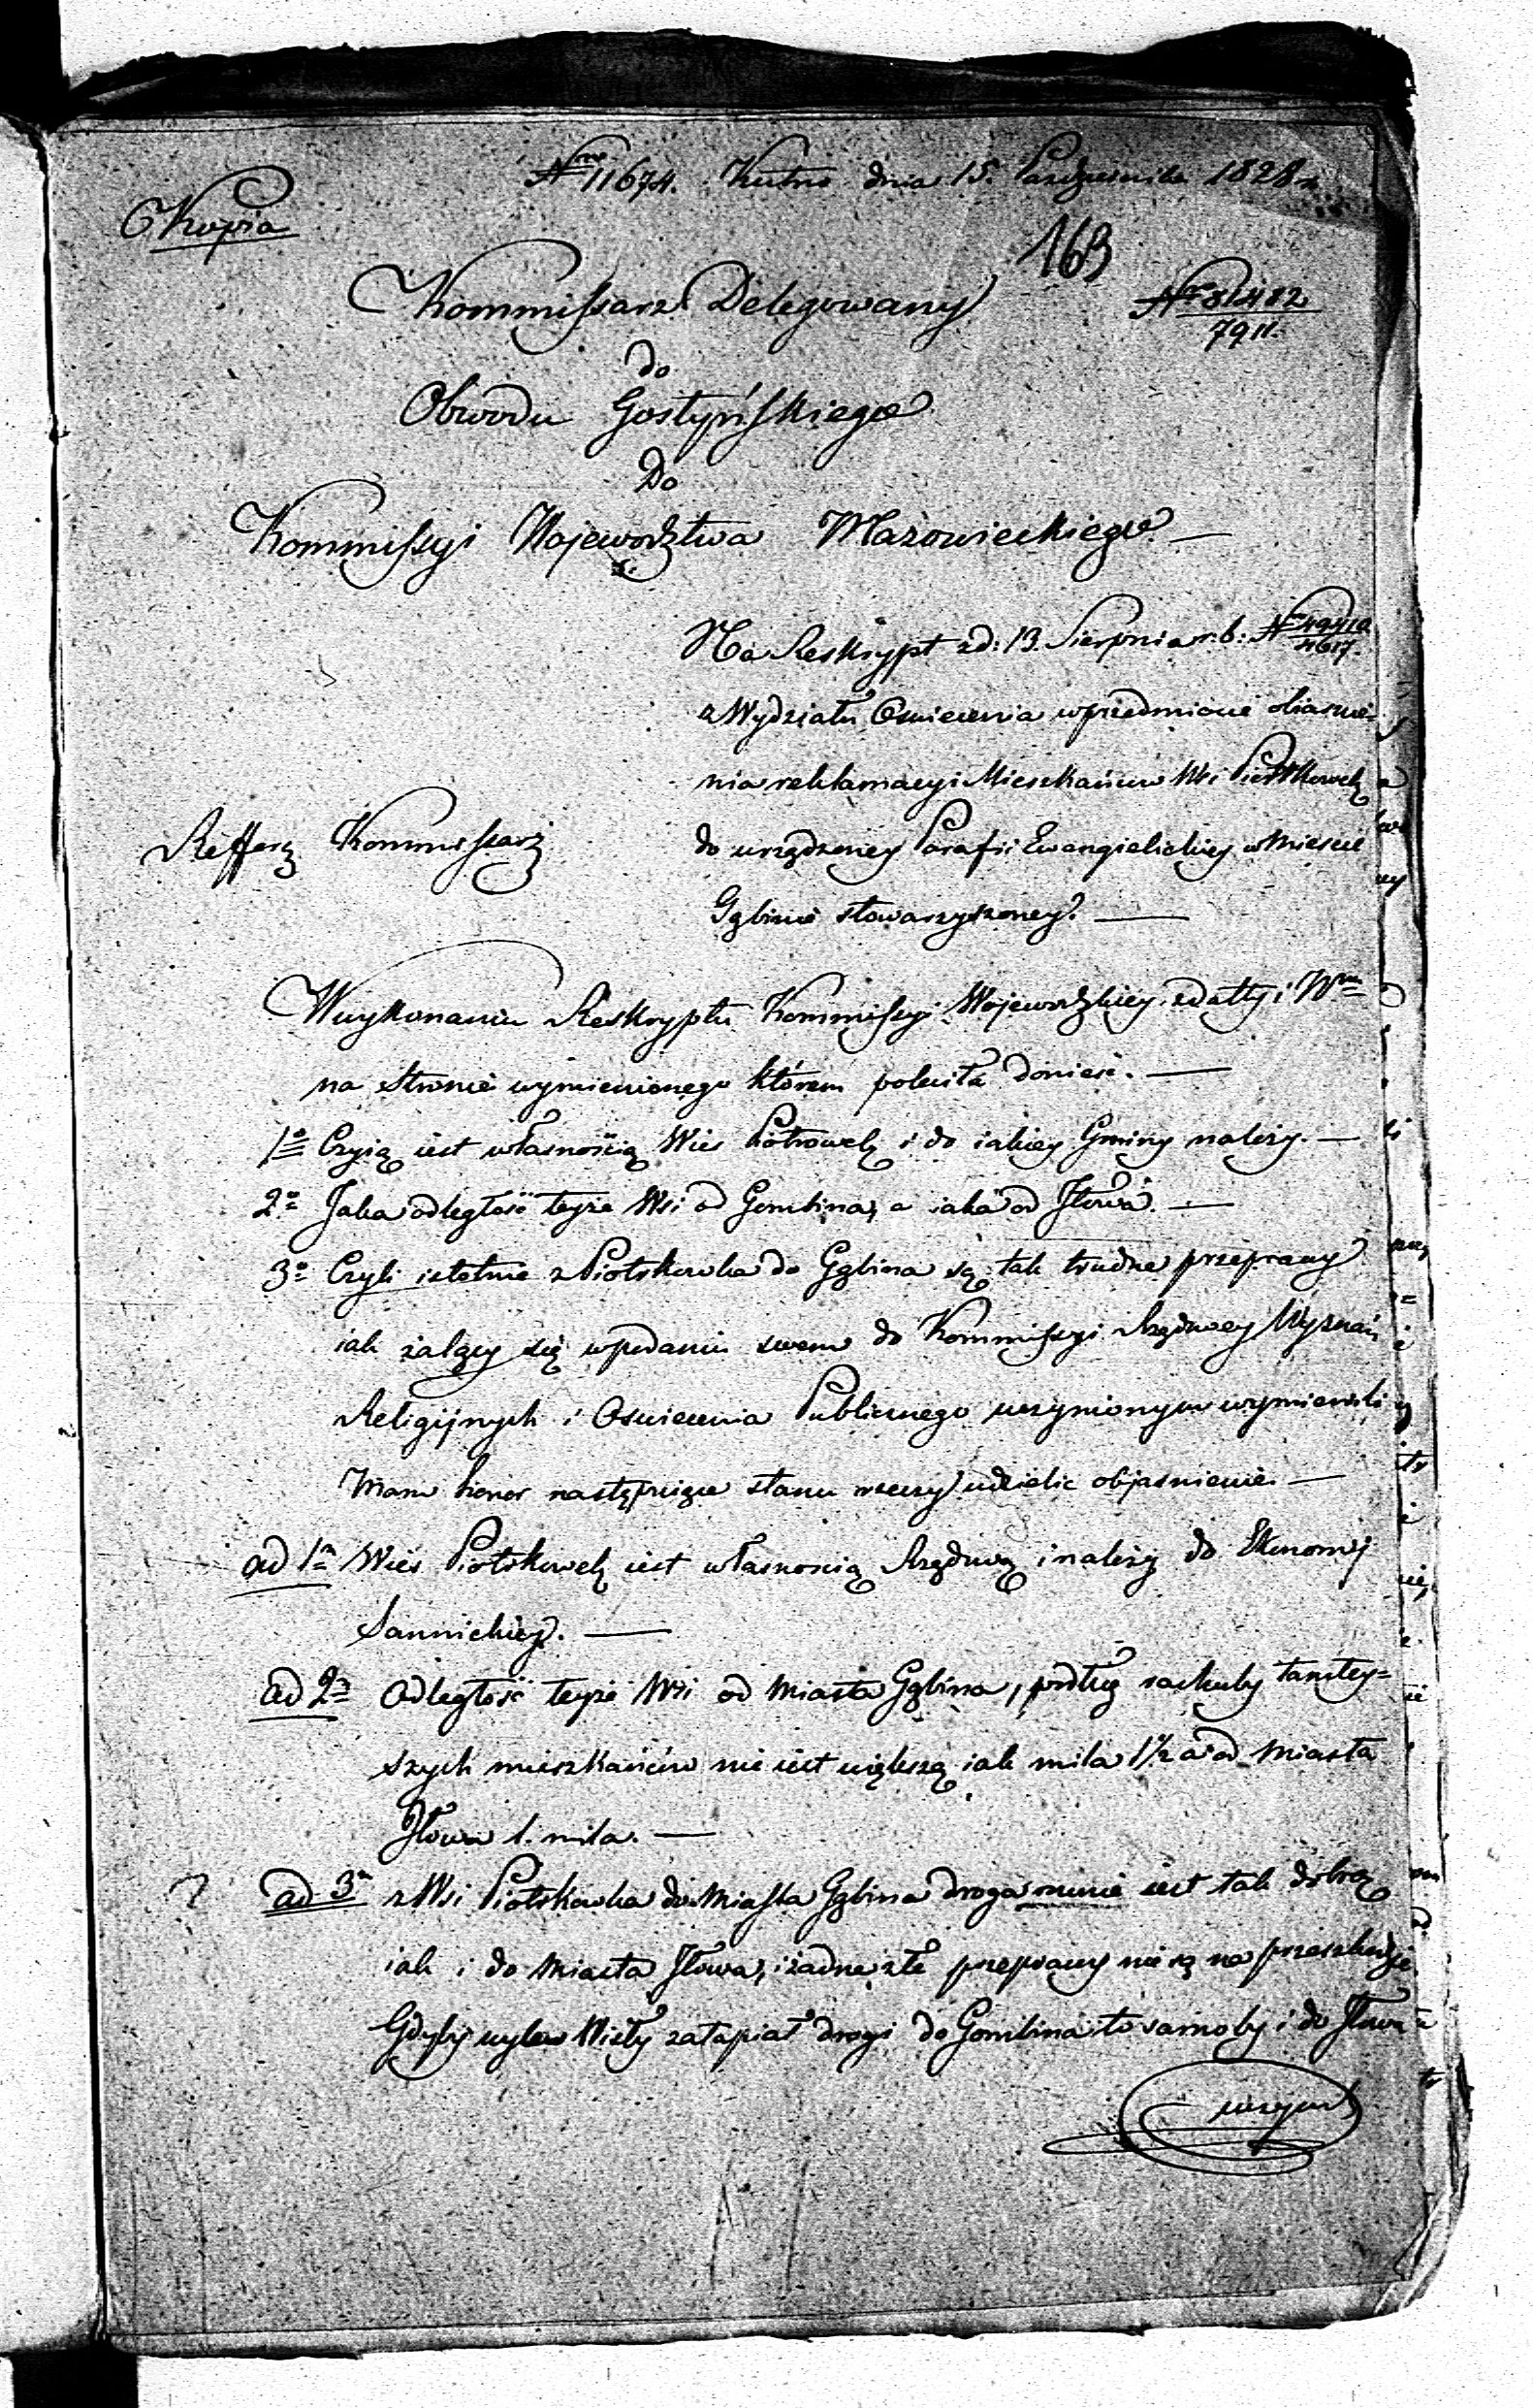 Nro 11674. Kutno dnia 15. Października 1828 r.
Kopia
163
Kommissarz Delegowany
Nro 81482
7911.
do
Obwodu Gostyńskiego
Do
Kommissyi Województwa Mazowieckiego. —
Na Reskrypt z d: 13. Sierpnia r. b: Nro 49410
4617.
z Wydziału Oswiecenia w przedmiocie obiasnie-
nia reklamacyi Mieszkańców Wsi Piotrkowek
Refferą Kommissarz
do urządzoney Parafii Ewangielickiey w Miescie
Gąbinie stowarzyszoney. —
W wykonaniu Reskryptu Kommissyi Wojewodzkiey z daty i Nru
na stronie wymienionego którem poleciła doniesć. —
1o Czyią iest własnością Wieś Piotrowek i do iakiey Gminy należy. —
2o Jaka odległość teyże Wsi od Gombina, a iaka od Jłowa. —
3o Czyli istotnie z Piotrkowka do Gąbina są tak trudne przeprawy
iak żalący się w podaniu swem do Kommissyi Rządowey Wyznań
Religijnych i Oswiecenia Publicznego uczynionym wymienili
Mam honor następuiące stanu rzeczy udzielic objasnienie. —
ad 1m Wieś Piotrkowek iest własnoscią Rządową i należy do Ekonomij
Sannickiey. —
ad 2m Odległość teyże Wsi od Miasta Gąbina, podług rachuby tamtey-
szych mieszkańców nie iest większą iak mila 1½ a od Miasta
Jłowa 1. mila. —
ad 3m z Wsi Piotrkowka do Miasta Gąbina droga iest tak dobrą
iak i do Miasta Jłowa, i żadne złe przeprawy nie są na przeszkodzie
Gdyby wylew Wisły zatapiał drogi do Gombina to samo by i do Jłowa
uczynił